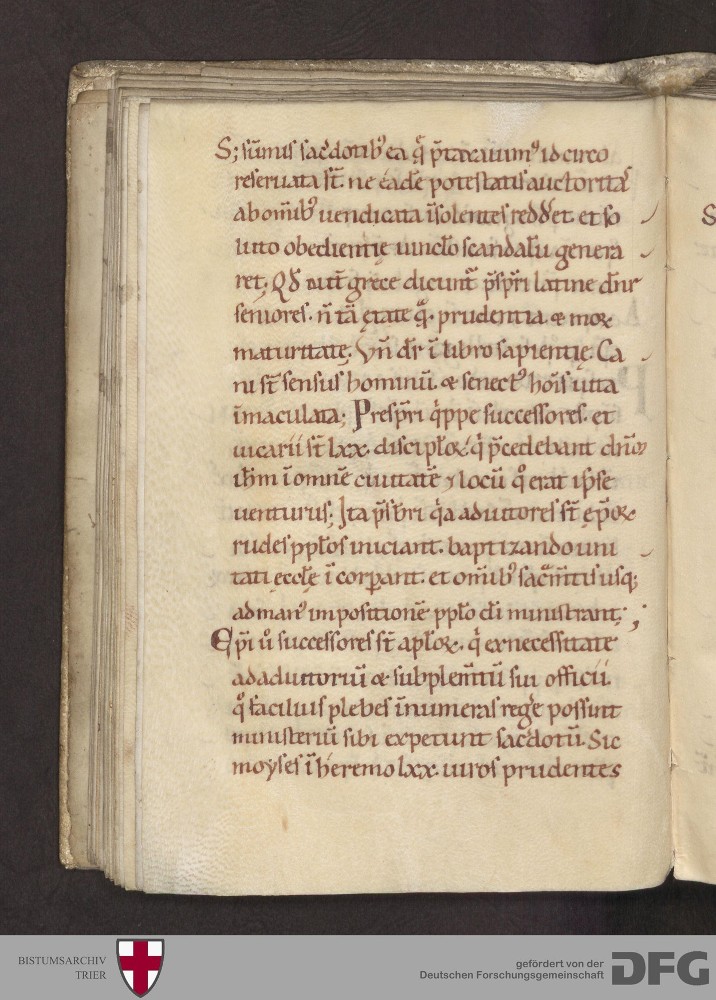 S; sūmis sac̄dotib᷒ ea q̄ p̄taxauim᷒ idcirco
reseruata st̄. ne eade potestatis auctoritas
ab omīb᷒ uendicata īsolentes redd̄et. et so
luto obedientię uinc̄lo scandal̄u genera
ret; Qd̄ aut̄ grece dicunt᷒ p̄sp̄ri latine dn̄r
seniores. n̄ tā ętate q̄. prudentia & moꝝ
maturitate; Vn̄ dr̄ ī libro sapientię. Ca
ni st̄ sensus hominū. & senect᷒ hoīs uita
īmaculata; Presp̄ri q̍ppe successores. et
uicarii st̄ lxx. discipl̄oꝝ q̍ p̄cedebant dn̄m
ih̄m ī omnē ciuitatē ⁊ locū q̊ erat ip̄se
venturus; Ita p̄sb̄ri q̍a adiutores st̄ ęp̄oꝝ
rudes ppl̄os iniciant. baptizando uni
tati ęccl̄ę īcorꝑant. et omīb᷒ sac̄m̄tis usq;
ad man᷒ impositionē ppl̄o dī ministrant;
Ep̄i ů successores st̄ apl̄oꝝ. q̍ ex necessitate
ad adiutoriū & subplem̄tū sui officii.
q̊ facilius plebes īnumeras reḡe possint
ministeriū sibi expetunt sac̄dotū. Sic
moyses ī heremo lxx. uiros prudentes
S
BISTUMSARCHIV
TRIER
gefördert von der
Deutschen Forschungsgemeinschaft
DFG